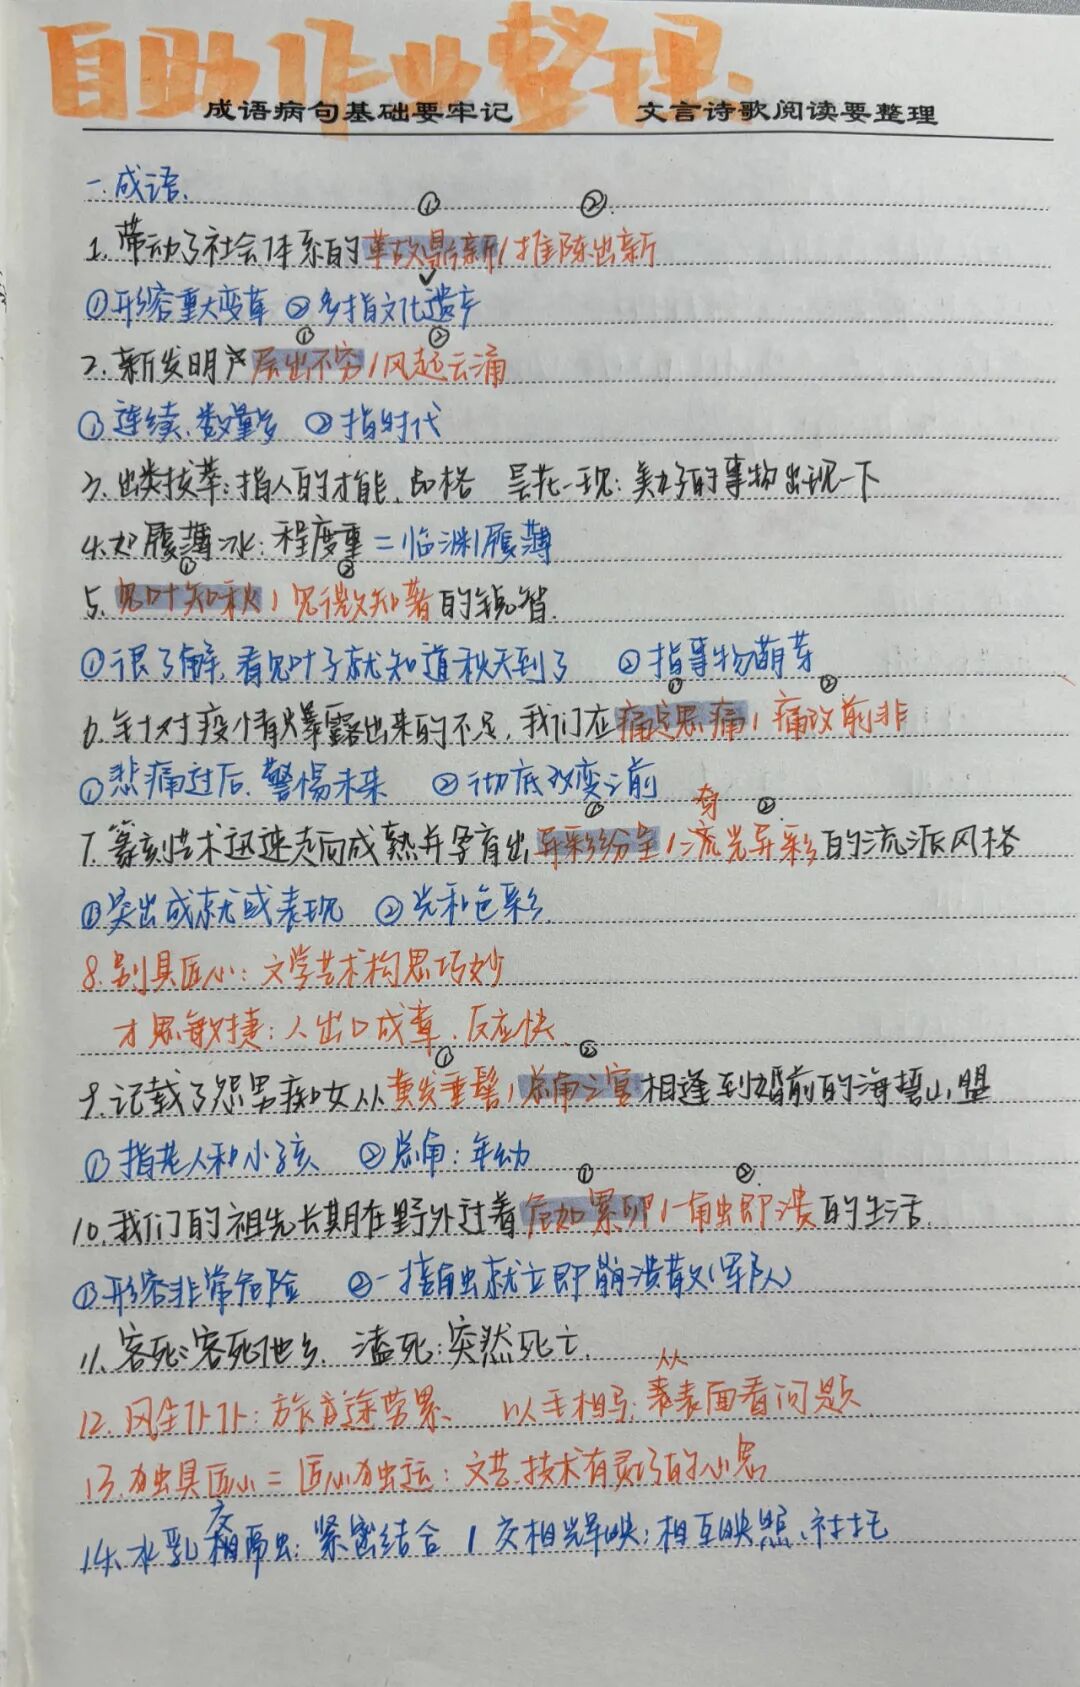 自助作业整理.
成语病句基础要牢记 文言诗歌阅读要整理
一.成语.
① ②
1.带动了社会体系的革故鼎新/推陈出新
①形容重大变革 ②多指文化遗产
① ②
2.新发明产层出不穷/风起云涌
①连续、数量多 ②指时代
3.出类拔萃:指人的才能、品格 昙花一现:美好的事物出现一下
4.如履薄冰:程度重=临渊履薄
① ②
5.见叶知秋/见微知著的锐智.
①很了解,看见叶子就知道秋天到了 ②指事物萌芽
① ②
6.针对疫情暴露出来的不足,我们应痛定思痛/痛改前非
①悲痛过后,警惕未来 ②彻底改变之前
① ②
7.篆刻艺术迅速走向成熟并孕育出异彩纷呈/流光异彩的流派风格
①突出成就或表现 ②光和色彩.
8.别具匠心:文学艺术构思巧妙
才思敏捷:人出口成章、反应快.
① ②
9.记载了怨男痴女从黄发垂髫/总角之宴相逢到婚前的海誓山盟
①指老人和小孩 ②总角:年幼
① ②
10.我们的祖先长期在野外过着危如累卵/一触即溃的生活.
①形容非常危险 ②一接触就立即崩溃散(军队)
11.客死:客死他乡. 溘死:突然死亡.
12.风尘仆仆:旅途劳累、 以毛相马:从表面看问题
13.独具匠心=匠心独运:文艺、技术有灵巧的心思
14.水乳交融:紧密结合/交相辉映:相互映照、衬托